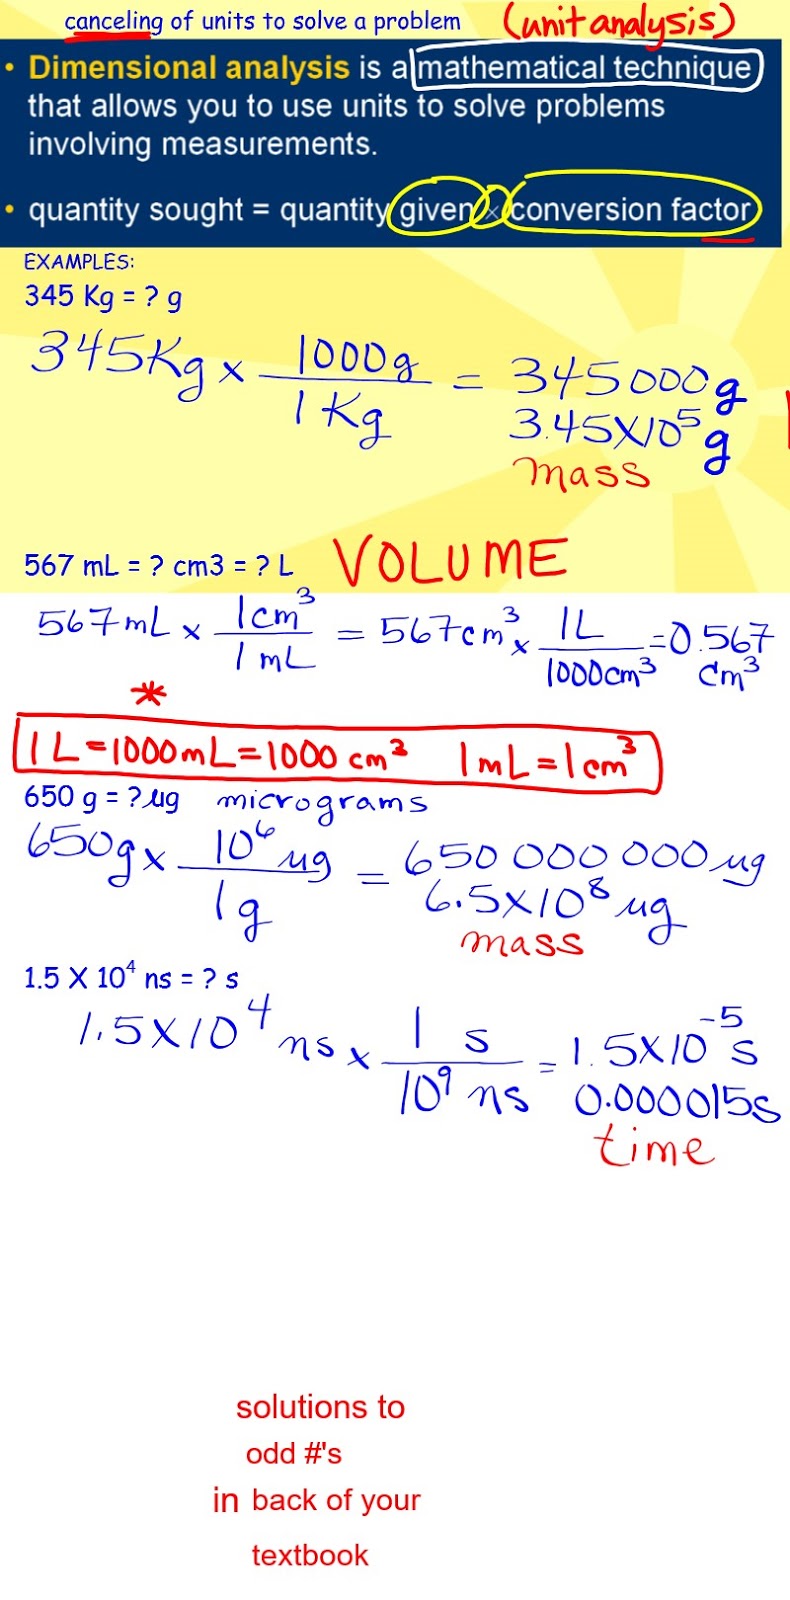 canceling of units to solve a problem (unit analysis)
• Dimensional analysis is a mathematical technique
that allows you to use units to solve problems
involving measurements.
• quantity sought = quantity given × conversion factor
EXAMPLES:
345 Kg = ? g
345Kg × 1000g / 1 Kg = 345000g
3.45X10⁵ g
mass
567 mL = ? cm3 = ? L VOLUME
567mL × 1cm³ / 1 mL = 567cm³ × 1L / 1000cm³ = 0.567 cm³
*
1 L = 1000mL = 1000 cm³ 1mL = 1cm³
650 g = ? µg micrograms
650g × 10⁶ µg / 1g = 650 000 000 µg
6.5X10⁸ µg
mass
1.5 X 10⁴ ns = ? s
1.5X10⁴ ns × 1 s / 10⁹ ns = 1.5X10⁻⁵ s
0.000015s
time
solutions to
odd #'s
in back of your
textbook